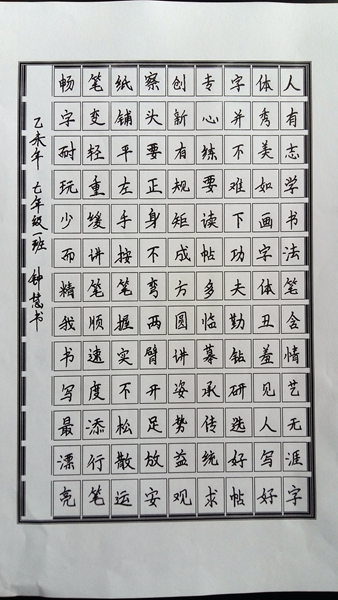 人有志学书法笔含情艺无涯字
体秀美如画字体丑羞见人写好
字并不难下功夫勤钻研选好帖
专心练要读帖多临摹承传统求
创新有规矩成方圆讲姿势益观
察头要正身不弯两臂开足放安
纸铺平左手按笔握实不松散运
笔变轻重缓讲笔顺速度添行笔
畅字耐玩少而精我书写最漂亮
乙未年 七年级一班 钟慧书